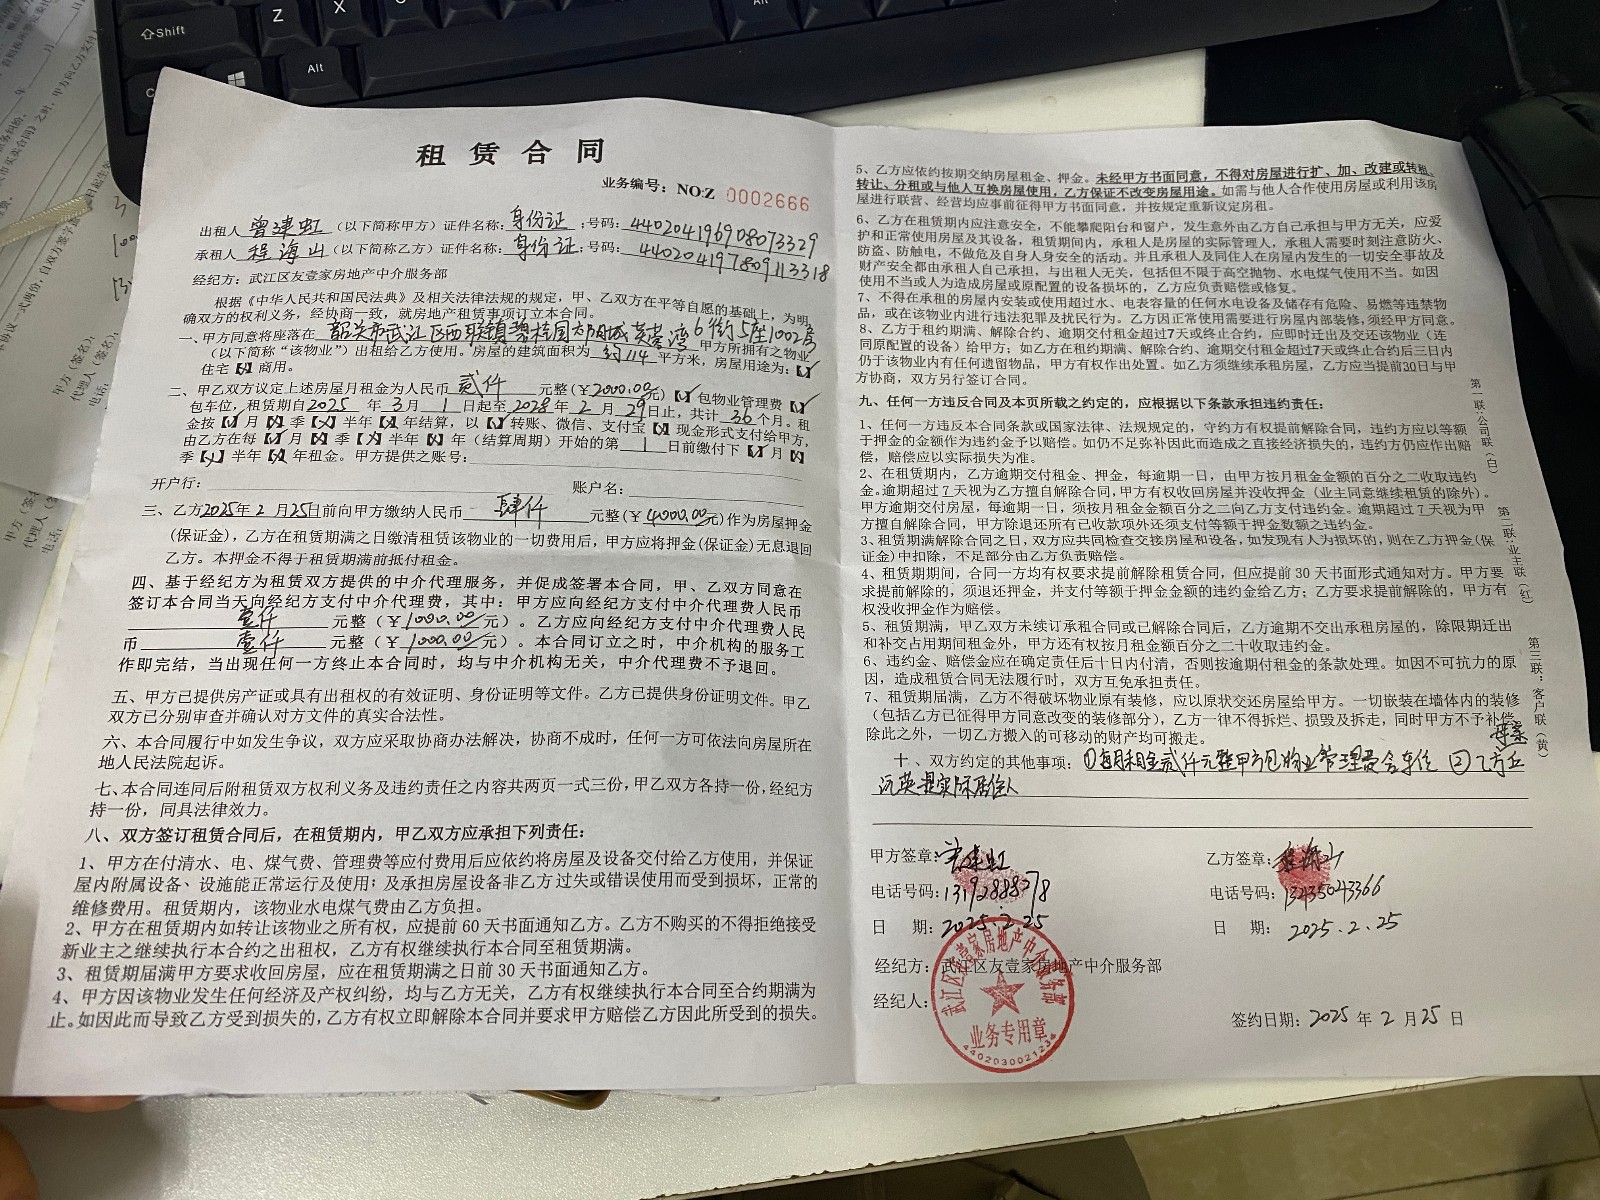 Shift
Z
X
Alt
租赁合同
业务编号：NO:Z 0002666
出租人 曾建虹 （以下简称甲方）证件名称：身份证 ；号码：440204196908073329
承租人 程海山 （以下简称乙方）证件名称：身份证 ；号码：440204197809113318
经纪方：武江区友壹家房地产中介服务部
根据《中华人民共和国民法典》及相关法律法规的规定，甲、乙双方在平等自愿的基础上，为明
确双方的权利义务，经协商一致，就房地产租赁事项订立本合同。
一、甲方同意将座落在 韶关市武江区西联镇碧桂园太阳城 湾6街5座1002房 甲方所拥有之物业
（以下简称“该物业”）出租给乙方使用。房屋的建筑面积为 约114 平方米，房屋用途为：【✓】
住宅【×】商用。
二、甲乙双方议定上述房屋月租金为人民币 贰仟 元整（￥2000.00元）【✓】包物业管理费【✓】
包车位，租赁期自2025 年 3 月 1 日起至 2028 年 2 月 29 日止，共计 36 个月。租
金按【✓】月【×】季【×】半年【×】年结算，以【✓】转账、微信、支付宝【×】现金形式支付给甲方，
由乙方在每【✓】月【×】季【×】半年【×】年（结算周期）开始的第 1 日前缴付下【✓】月【×】
季【×】半年【×】年租金。甲方提供之账号：
开户行： 账户名：
三、乙方2025年2月25日前向甲方缴纳人民币 肆仟 元整（￥4000.00元）作为房屋押金
（保证金），乙方在租赁期满之日缴清租赁该物业的一切费用后，甲方应将押金(保证金)无息退回
乙方。本押金不得于租赁期满前抵付租金。
四、基于经纪方为租赁双方提供的中介代理服务，并促成签署本合同，甲、乙双方同意在
签订本合同当天向经纪方支付中介代理费，其中：甲方应向经纪方支付中介代理费人民币
壹仟 元整（￥1000.00元）。乙方应向经纪方支付中介代理费人民
币 壹仟 元整（￥1000.00元）。本合同订立之时，中介机构的服务工
作即完结，当出现任何一方终止本合同时，均与中介机构无关，中介代理费不予退回。
五、甲方已提供房产证或具有出租权的有效证明、身份证明等文件。乙方已提供身份证明文件。甲乙
双方已分别审查并确认对方文件的真实合法性。
六、本合同履行中如发生争议，双方应采取协商办法解决，协商不成时，任何一方可依法向房屋所在
地人民法院起诉。
七、本合同连同后附租赁双方权利义务及违约责任之内容共两页一式三份，甲乙双方各持一份，经纪方
持一份，同具法律效力。
八、双方签订租赁合同后，在租赁期内，甲乙双方应承担下列责任：
1、甲方在付清水、电、煤气费、管理费等应付费用后应依约将房屋及设备交付给乙方使用，并保证
屋内附属设备、设施能正常运行及使用；及承担房屋设备非乙方过失或错误使用而受到损坏，正常的
维修费用。租赁期内，该物业水电煤气费由乙方负担。
2、甲方在租赁期内如转让该物业之所有权，应提前 60 天书面通知乙方。乙方不购买的不得拒绝接受
新业主之继续执行本合约之出租权，乙方有权继续执行本合同至租赁期满。
3、租赁期届满甲方要求收回房屋，应在租赁期满之日前 30 天书面通知乙方。
4、甲方因该物业发生任何经济及产权纠纷，均与乙方无关，乙方有权继续执行本合同至合约期满为
止。如因此而导致乙方受到损失的，乙方有权立即解除本合同并要求甲方赔偿乙方因此所受到的损失。
5、乙方应依约按期交纳房屋租金、押金。未经甲方书面同意，不得对房屋进行扩、加、改建或转租、
转让、分租或与他人互换房屋使用，乙方保证不改变房屋用途。如需与他人合作使用房屋或利用该房
屋进行联营、经营均应事前征得甲方书面同意，并按规定重新议定房租。
6、乙方在租赁期内应注意安全，不能攀爬阳台和窗户，发生意外由乙方自己承担与甲方无关，应爱
护和正常使用房屋及其设备，租赁期间内，承租人是房屋的实际管理人，承租人需要时刻注意防火、
防盗、防触电，不做危及自身人身安全的活动。并且承租人及同住人在房屋内发生的一切安全事故及
财产安全都由承租人自己承担，与出租人无关，包括但不限于高空抛物、水电煤气使用不当。如因
使用不当或人为造成房屋或原配置的设备损坏的，乙方应负责赔偿或修复。
7、不得在承租的房屋内安装或使用超过水、电表容量的任何水电设备及储存有危险、易燃等违禁物
品，或在该物业内进行违法犯罪及扰民行为。乙方因正常使用需要进行房屋内部装修，须经甲方同意。
8、乙方于租约期满、解除合约、逾期交付租金超过7天或终止合约，应即时迁出及交还该物业（连
同原配置的设备）给甲方；如乙方在租约期满、解除合约、逾期交付租金超过7天或终止合约后三日内
仍于该物业内有任何遗留物品，甲方有权作出处置。如乙方须继续承租房屋，乙方应当提前30日与甲
方协商，双方另行签订合同。
九、任何一方违反合同及本页所载之约定的，应根据以下条款承担违约责任：
1、任何一方违反本合同条款或国家法律、法规规定的，守约方有权提前解除合同，违约方应以等额
于押金的金额作为违约金予以赔偿。如仍不足弥补因此而造成之直接经济损失的，违约方仍应作出赔
偿，赔偿应以实际损失为准。
2、在租赁期内，乙方逾期交付租金、押金，每逾期一日，由甲方按月租金金额的百分之二收取违约
金。逾期超过 7 天视为乙方擅自解除合同，甲方有权收回房屋并没收押金（业主同意继续租赁的除外）。
甲方逾期交付房屋，每逾期一日，须按月租金金额百分之二向乙方支付违约金。逾期超过 7 天视为甲
方擅自解除合同，甲方除退还所有已收款项外还须支付等额于押金数额之违约金。
3、租赁期满解除合同之日，双方应共同检查交接房屋和设备，如发现有人为损坏的，则在乙方押金(保
证金)中扣除，不足部分由乙方负责赔偿。
4、租赁期期间，合同一方均有权要求提前解除租赁合同，但应提前 30 天书面形式通知对方。甲方要
求提前解除的，须退还押金，并支付等额于押金金额的违约金给乙方；乙方要求提前解除的，甲方有
权没收押金作为赔偿。
5、租赁期满，甲乙双方未续订承租合同或已解除合同后，乙方逾期不交出承租房屋的，除限期迁出
和补交占用期间租金外，甲方还有权按月租金额百分之二十收取违约金。
6、违约金、赔偿金应在确定责任后十日内付清，否则按逾期付租金的条款处理。如因不可抗力的原
因，造成租赁合同无法履行时，双方互免承担责任。
7、租赁期届满，乙方不得破坏物业原有装修，应以原状交还房屋给甲方。一切嵌装在墙体内的装修
（包括乙方已征得甲方同意改变的装修部分），乙方一律不得拆烂、损毁及拆走，同时甲方不予补偿。
除此之外，一切乙方搬入的可移动的财产均可搬走。
十、双方约定的其他事项：①每月租金贰仟元整甲方包物业管理费含车位 ②乙方丘
沅英是实际居住人
甲方签章：曾建虹
电话号码：13192888278
日 期：2025.2.25
乙方签章：程海山
电话号码：13435043366
日 期：2025.2.25
经纪方：武江区友壹家房地产中介服务部
经纪人：
签约日期：2025 年 2 月 25 日
武江区友壹家房地产中介服务部
业务专用章
4402030021234
第一联：公司联（白）
第二联：业主联（红）
第三联：客户联（黄）